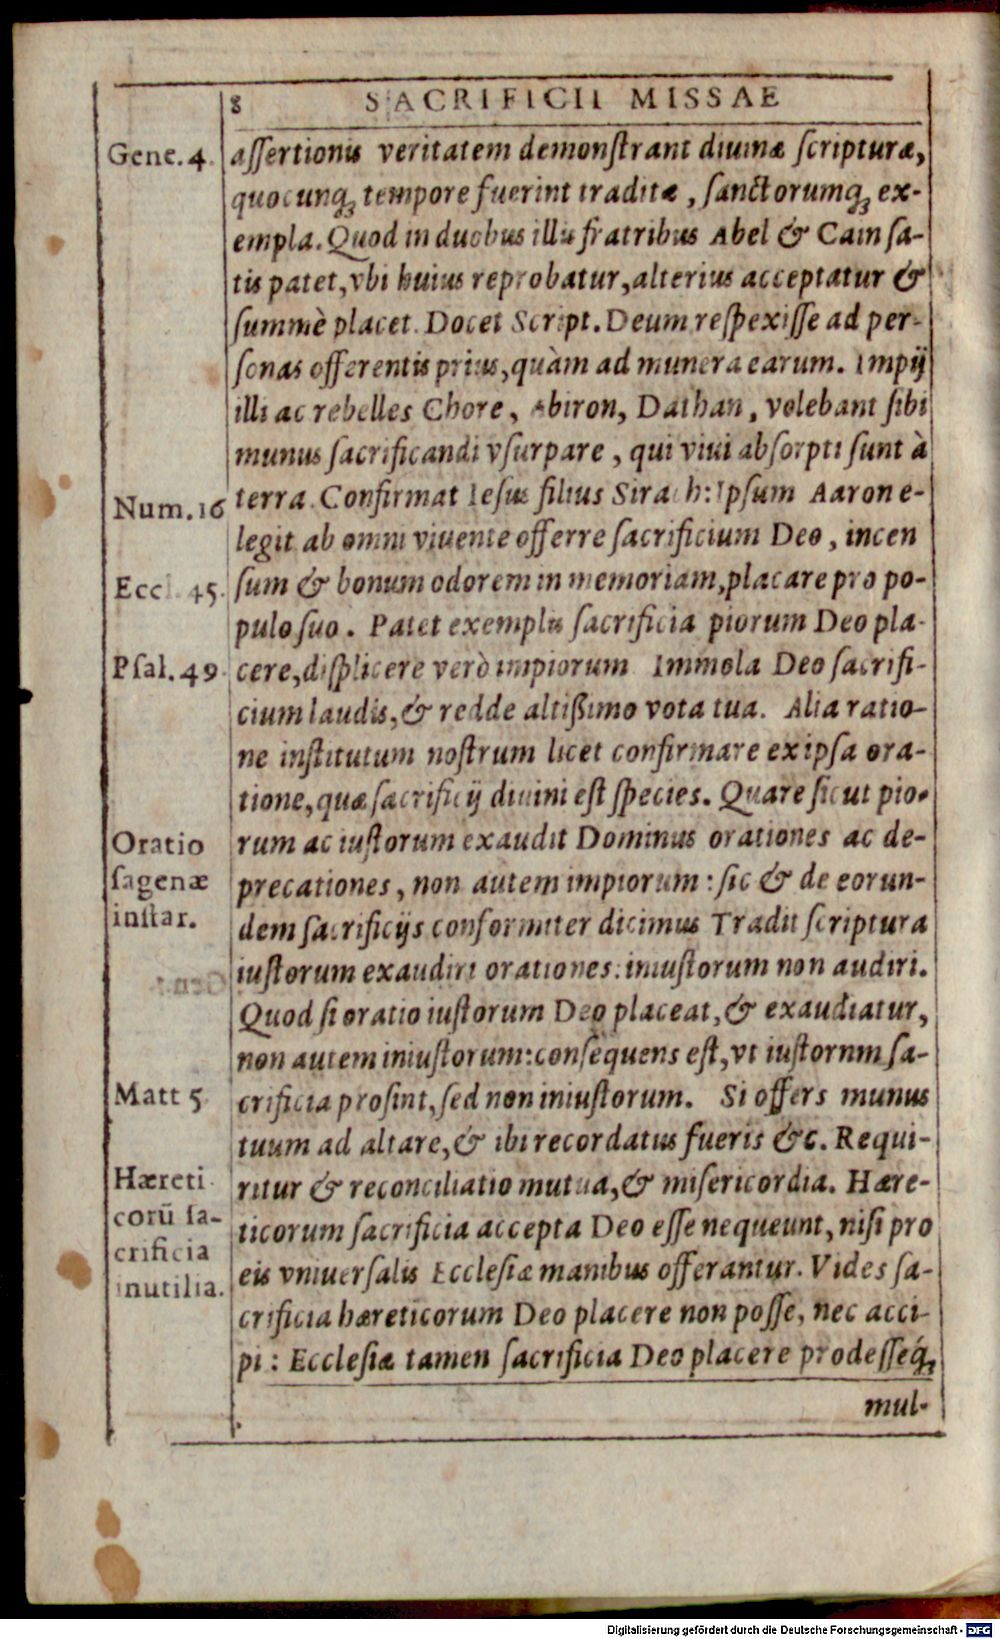 8 SACRIFICII MISSAE
Gene. 4.
aſſertionis veritatem demonſtrant diuinæ ſcripturæ,
quocunq; tempore fuerint traditæ, ſanctorumq; ex-
empla. Quod in duobus illis fratribus Abel & Cain ſa-
tis patet, vbi huius reprobatur, alterius acceptatur &
ſummè placet. Docet Script. Deum reſpexiſſe ad per-
ſonas offerentis prius, quàm ad munera earum. Impij
illi ac rebelles Chore, Abiron, Dathan, volebant ſibi
munus ſacrificandi vſurpare, qui viui abſorpti ſunt à
Num. 16
terra. Confirmat Ieſus filius Sirach: Ipſum Aaron e-
legit ab omni viuente offerre ſacrificium Deo, incen
Eccl. 45.
ſum & bonum odorem in memoriam, placare pro po-
pulo ſuo. Patet exemplis ſacrificia piorum Deo pla-
Pſal. 49.
cere, diſplicere verò impiorum Immola Deo ſacrifi-
cium laudis, & redde altiſſimo vota tua. Alia ratio-
ne inſtitutum noſtrum licet confirmare ex ipſa ora-
tione, quæ ſacrificij diuini eſt ſpecies. Quare ſicut pio-
Oratio
ſagenæ
inſtar.
rum ac iuſtorum exaudit Dominus orationes ac de-
precationes, non autem impiorum: ſic & de eorun-
dem ſacrificijs conformiter dicimus Tradit ſcriptura
iuſtorum exaudiri orationes: iniuſtorum non audiri.
Quod ſi oratio iuſtorum Deo placeat, & exaudiatur,
non autem iniuſtorum: conſequens eſt, vt iuſtornm ſa-
Matt 5.
crificia proſint, ſed non iniuſtorum. Si offers munus
tuum ad altare, & ibi recordatus fueris &c. Requi-
Hæreti
corū ſa-
crificia
inutilia.
ritur & reconciliatio mutua, & miſericordia. Hære-
ticorum ſacrificia accepta Deo eſſe nequeunt, niſi pro
eis vniuerſalis Eccleſiæ manibus offerantur. Vides ſa-
crificia hæreticorum Deo placere non poſſe, nec acci-
pi: Eccleſiæ tamen ſacrificia Deo placere prodeſſeq́;
mul-
Digitalisierung gefördert durch die Deutsche Forschungsgemeinschaft - DFG